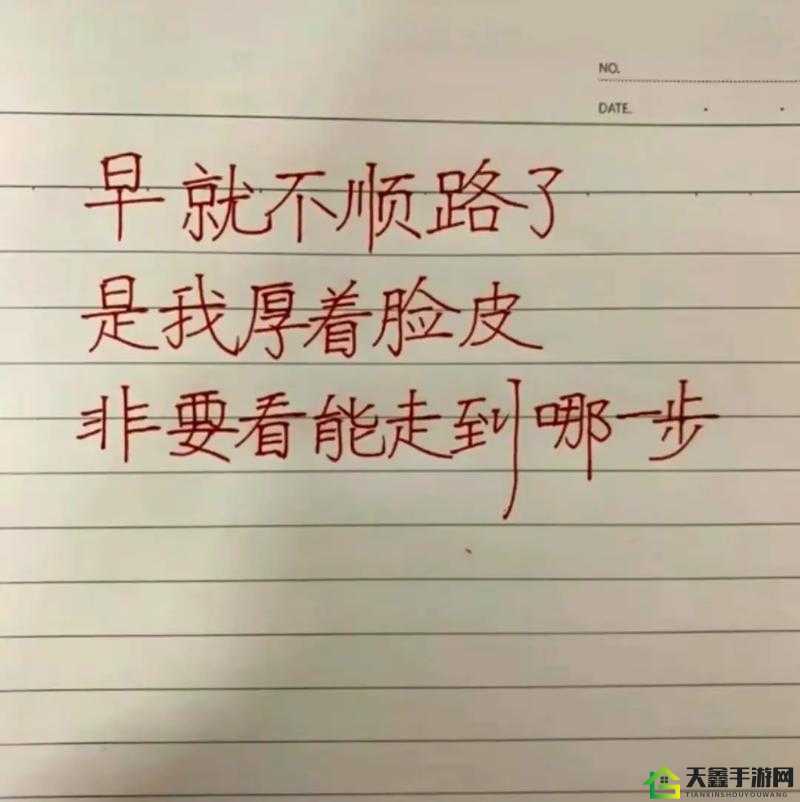 NO.
DATE.
早就不顺路了
是我厚着脸皮
非要看能走到哪一步
天鑫手游网
TIANXINSHOUYOUWANG